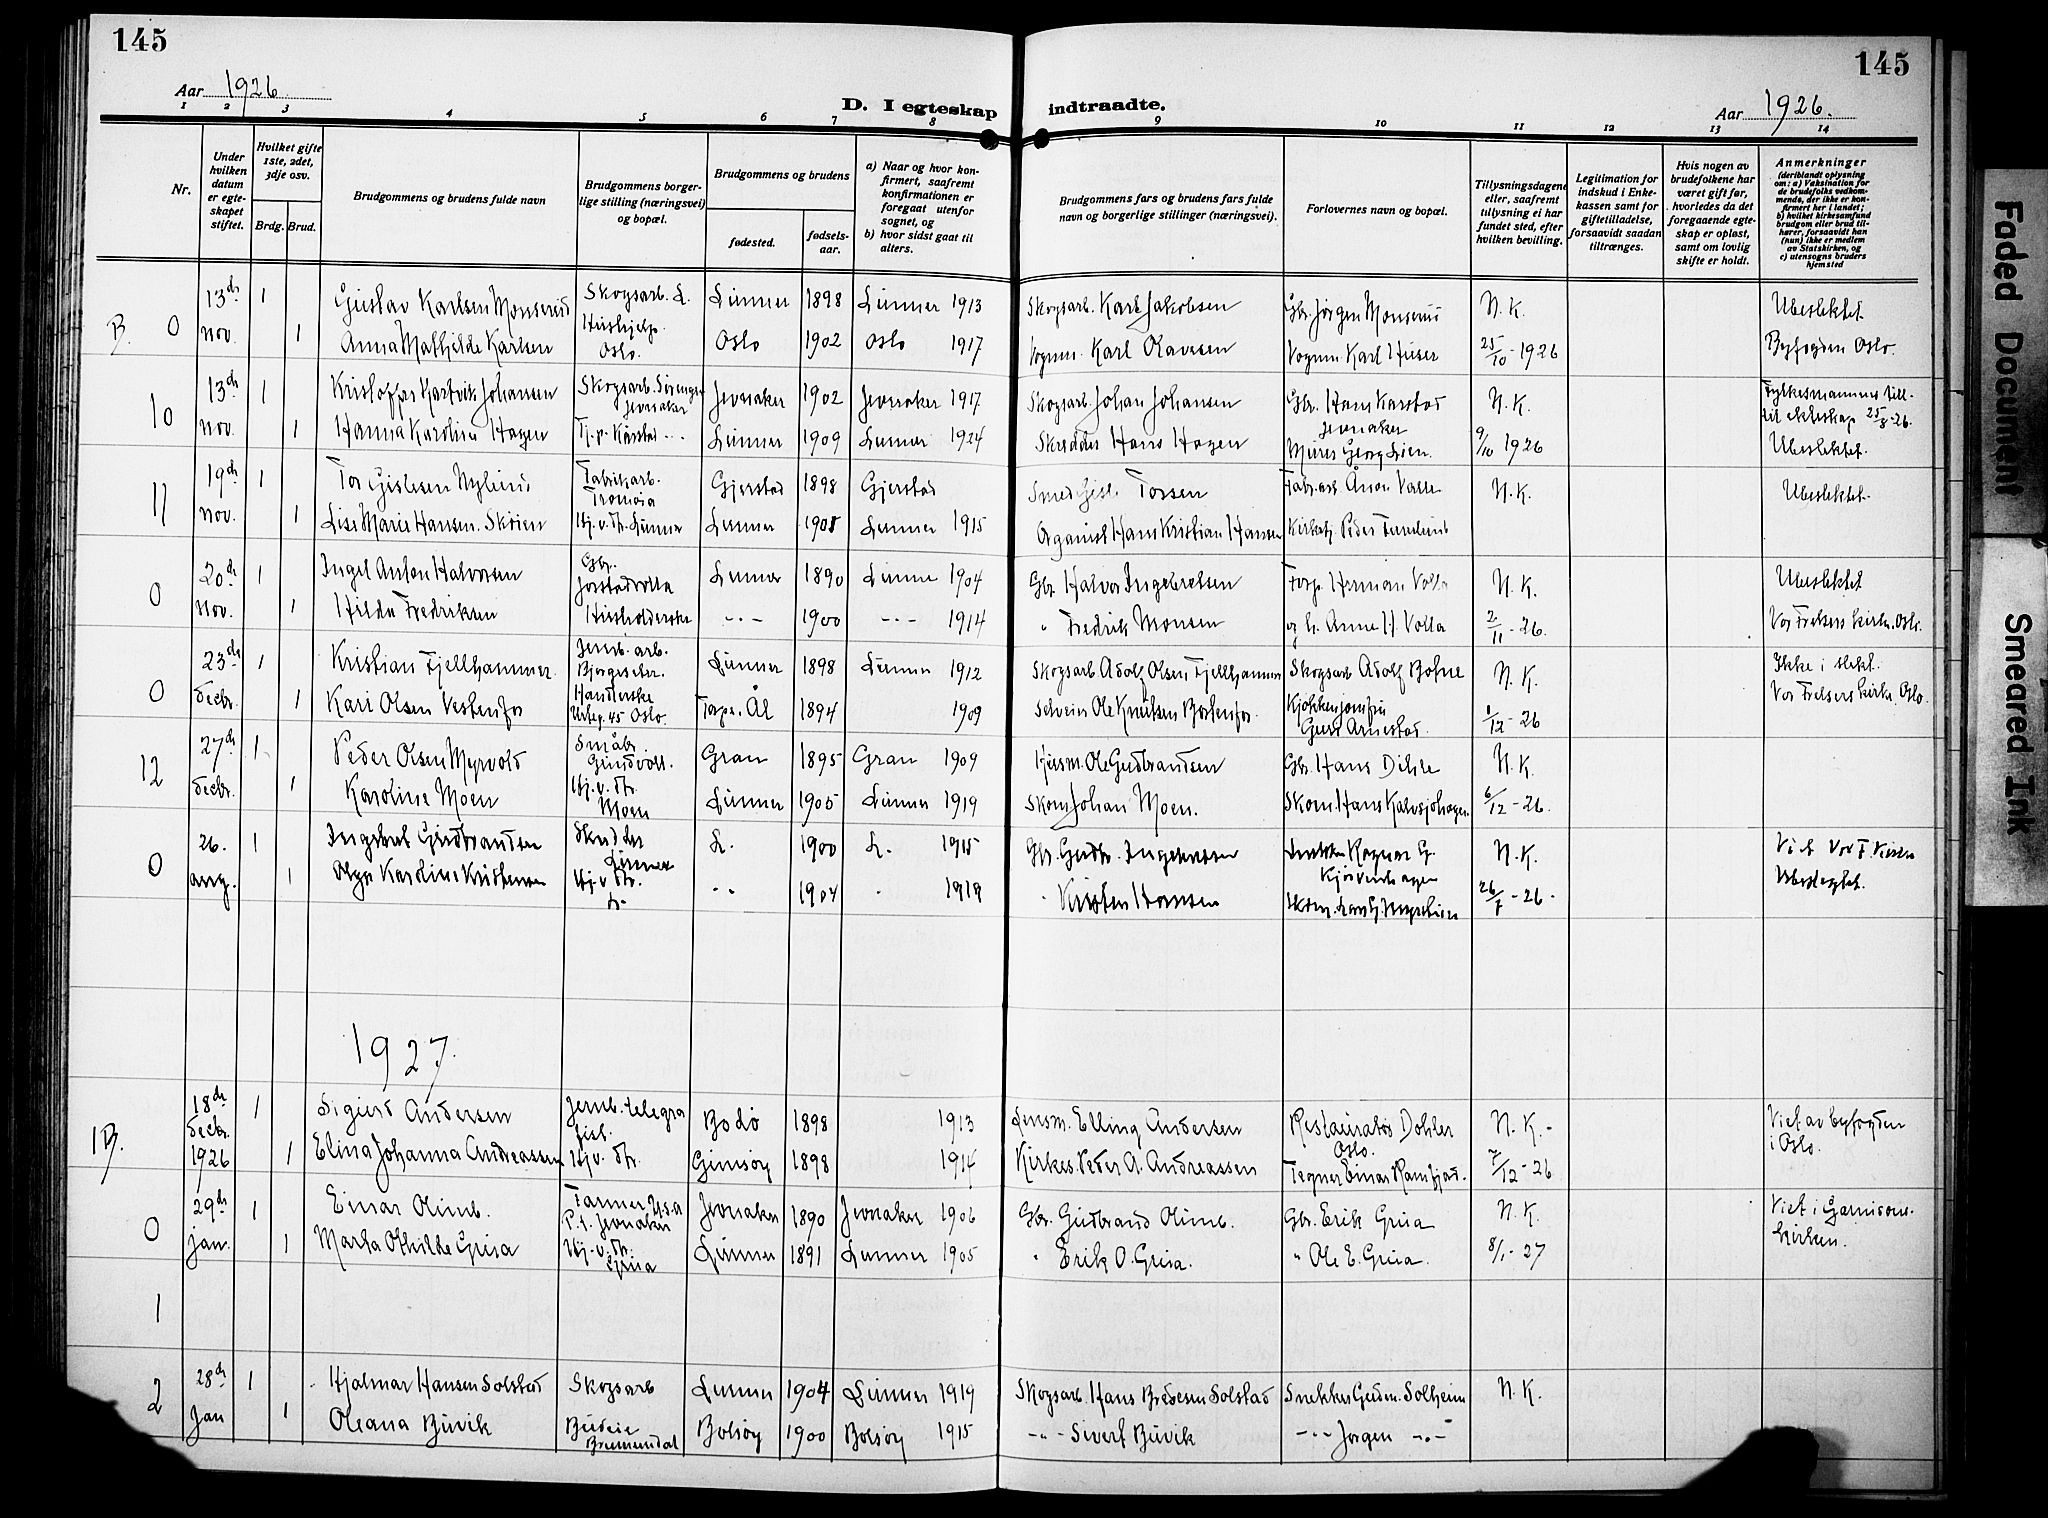 145
145
Aar 1926.
D. I egteskap indtraadte.
Aar 1926.
1 2 3 4 5 6 7 8 9 10 11 12 13 14
Nr.
Under hvilken datum er egteskapet stiftet.
Hvilket gifte 1ste, 2det, 3dje osv.
Brdg. Brud.
Brudgommens og brudens fulde navn
Brudgommens borgerlige stilling (næringsvei) og bopæl.
Brudgommens og brudens
fødested.
fødselsaar.
a) Naar og hvor konfirmert, saafremt konfirmationen er foregaat utenfor sognet, og
b) hvor sidst gaat til alters.
Brudgommens fars og brudens fars fulde navn og borgerlige stillinger (næringsvei).
Forlovernes navn og bopæl.
Tillysningsdagene eller, saafremt tillysning ei har fundet sted, efter hvilken bevilling.
Legitimation for indskud i Enkekassen samt for giftetilladelse, forsaavidt saadan tiltrænges.
Hvis nogen av brudefolkene har været gift før, hvorledes da det foregaaende egteskap er opløst, samt om lovlig skifte er holdt.
Anmerkninger (deriblandt oplysning om: a) Vaksination for de brudefolks vedkommende, der ikke er konfirmert her i landet; b) hvilket kirkesamfund brudgom eller brud tilhører, forsaavidt han (hun) ikke er medlem av Statskirken, og c) utensogns bruders hjemsted
B. 0 13de 1 Gustav Karlsen Monserud Skogsarb. L. Lunner 1898 Lunner 1913 Skogsarb. Karl Jakobsen Gbr. Jørgen Monserud N. K. Ubeslektet
nov. 1 Anna Mathilde Karlsen Hushjelp. Oslo. Oslo 1902 Oslo 1917 Vognm. Karl Olavesen Vognm. Karl 25/10-1926 Byfogden Oslo.
10 13de 1 Kristoffer Johansen Skogsarb. Jevnaker Jevnaker 1902 Jevnaker 1917 Skogsarb. Johan Johansen Gbr. Hans Karstad Jevnaker N. K. Fylkesmannens till. til ekteskap 25/8-26.
nov. 1 Hanna Karoline Hagen Tj.p. Karstad Lunner 1909 Lunner 1924 Skredder Hans Hagen Murer Georg Lien. 9/10 1926 Ubeslektet.
11 19de 1 Tor Gislesen Nylund Fabrikarb. Tromøia Gjerstad 1898 Gjerstad Smed Tossen Fabr.arb. N. K. Ubeslektet.
nov. 1 Lise Marie Hansen Skøien Hj.v.Fr. Lunner Lunner Lunner 1915 Organist Hans Kristian Hansen Kirketj. Peder
0 20de 1 Ingel Anton Halvorsen Gbr. Lunner 1890 Lunner 1904 Gbr. Halvor Ingebretsen Forp. Herman Volla N. K. Ubeslektet
nov. 1 Hilda Fredriksen Husholderske -"- 1900 -"- 1914 " Fredrik Monsen og h. Anne H. Volla 2/11-26. Vor Frelsers kirke, Oslo.
0 23de 1 Kristian Fjellhammer. Jernb.arb. Lunner 1898 Lunner 1912 Skogsarb Adolf Olsen Fjellhammer Skogsarb Adolf N. K. Ikke i slekt.
decbr. 1 Kari Olsen Urteg. 45 Oslo. Torpe. Ål 1894 1909 Ole Knutsen Kjøkkenjomfru 1/12-26 Vor Frelsers kirke, Oslo.
12 27de 1 Peder Olsen Myrvold Småbr. Grindvoll. Gran 1895 Gran 1909 Husm. Ole Gudbrandsen Gbr. Hans Dihle N. K.
decbr. 1 Karoline Moen Hj.v.Fr. Moen Lunner 1905 Lunner 1919 Skom. Johan Moen. Skom. Hans 6/12-26.
0 26. 1 Ingebret Gudbrandsen Lunner L. 1900 L. 1915 Gbr. Gudbr. Ingebretsen Ragnar G. N. K. Vi i Vor F. Kirke
aug. 1 Olga Karoline Kristensen Hj.v.Fr. L. " 1904 " 1919 " Kristen Hansen 26/7-26- Ubeslegtet.
1927.
1B. 18de decbr. 1926 1 Sigurd Andersen Jernb.telegrafist. Bodø 1898 1913 Lensm. Elling Andersen Restauratør Dohler Oslo. N. K.- Viet av byfogden i Oslo.
1 Elina Johanna Andreassen Hj.v.Fr. Gimsøy 1898 1914 Kirkes. Peder A. Andreassen Tegner Einar 7/12-26
0 29de 1 Einar Olimb. Farmer U.s.a P.t. Jevnaker Jevnaker 1890 Jevnaker 1906 Gbr. Gudbrand Olimb. Gbr. Erik Grua N. K. Viet i Garnisonskirken.
jan. 1 Marta Othilde Grua Hj.v.Fr. Grua Lunner 1891 Lunner 1905 " Erik O. Grua. " Ole E. Grua. 8/1-27
1
2 28de 1 Hjalmar Hansen Solstad Skogsarb Lunner 1904 Lunner 1919 Skogsarb. Hans Bredesen Solstad Snekker Gudm. Solheim N. K.
jan 1 Oleana Buvik Budeie Bolsøy 1900 Bolsøy 1915 -"- Sivert Buvik -"- Jørgen -"-
Faded Document
Smeared Ink